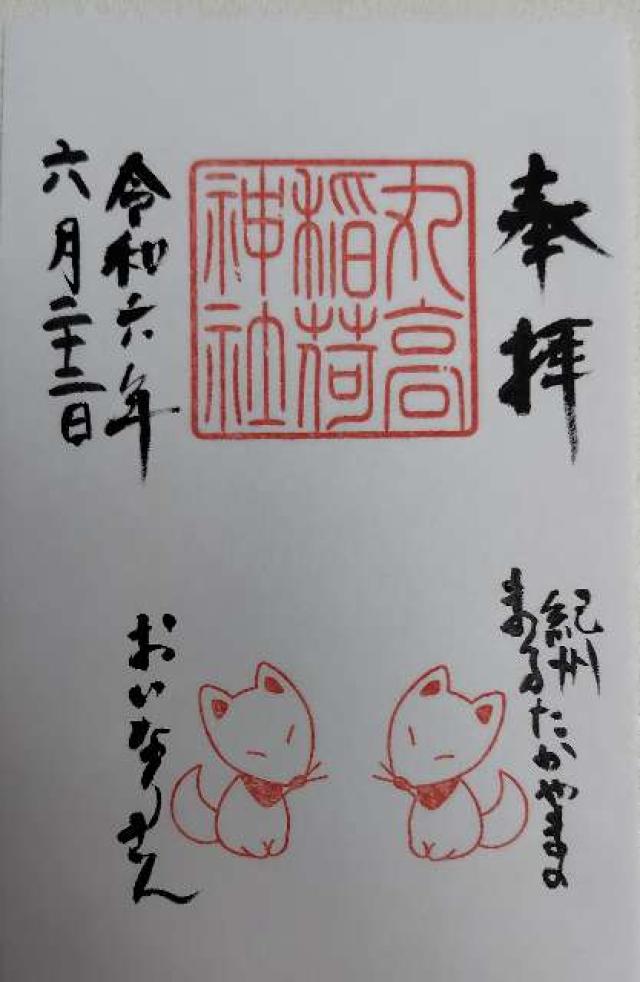 奉拝
丸高
稲荷
神社
令和六年
六月二十二日
紀州
まるたかやまの
おいなりさん